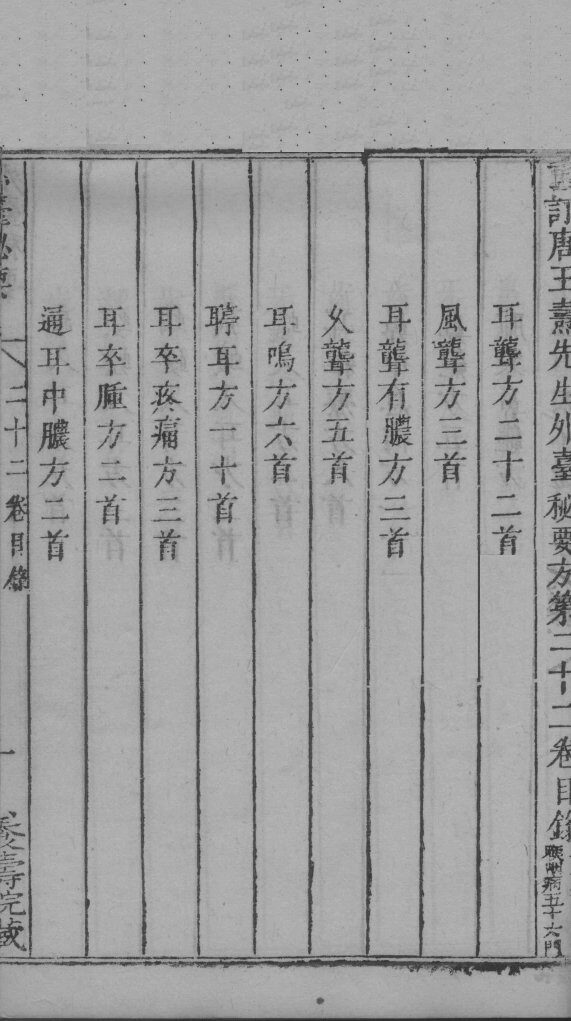 重訂唐王燾先生外臺秘要方第二十二卷目錄
耳聾方二十二首
風聾方三首
耳聾有膿方三首
久聾方五首
耳鳴方六首
聤耳方一十首
耳卒疼痛方三首
耳卒腫方二首
通耳中膿方二首
臺秘要 二十二卷目錄 一 養壽院藏